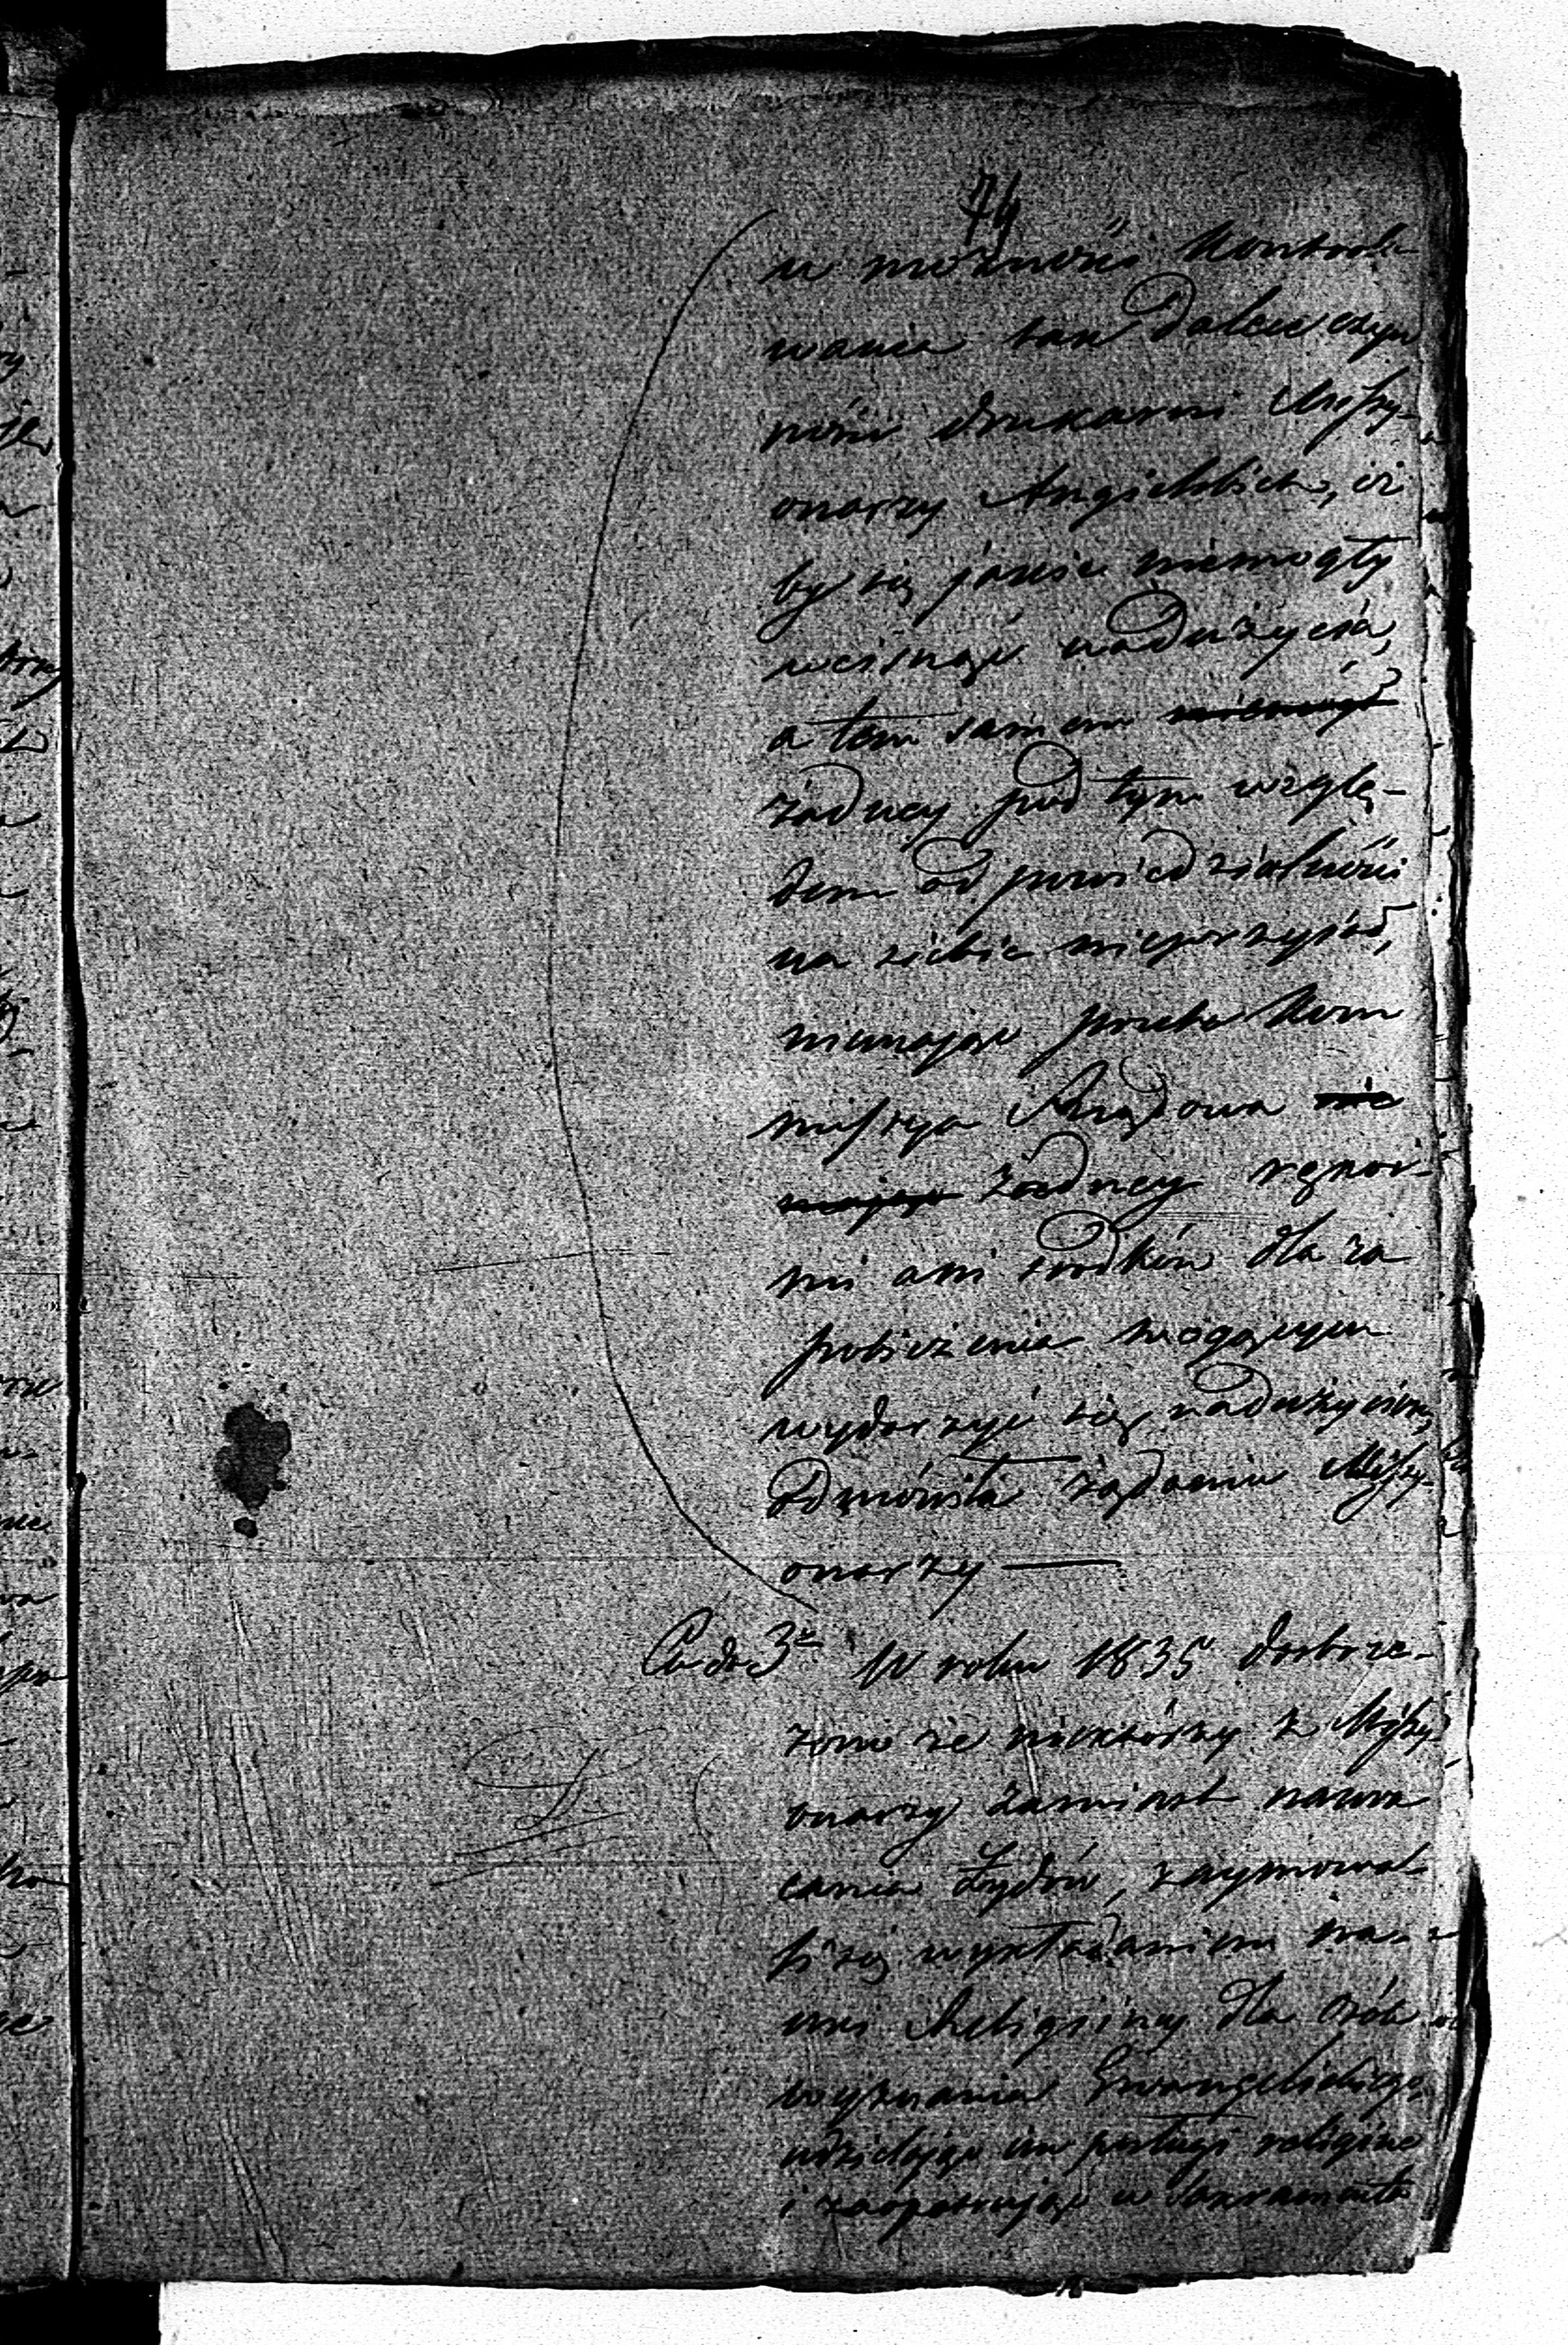 74
w możności kontrolo-
wania tak dalece czyn
ności drukarni Missy-
onarzy Angielskich, iż
by się jakie niemogły
wcisnąć nadużycia,
a tem samem niemógł
żadney pod tym wzglę-
dem odpowiedzialności
na siebie nieprzyjął,
niemając przeto Kom
missya Rządowa nie
mając żadney rękoy-
mi ani środków dla za
pobieżenia mogącym
wydarzyć się nadużyciom,
odmówiła żądaniu Missy-
onarzy —
Co do 3º W roku 1835 dostrze-
żono że niektórzy z Missy-
onarzy zamiast nawra
cania Żydów, zaymowa-
li się wykładaniem na-
uki Religiiney dla osób
wyznania Ewangelickiego
udzielając im posługi religiine
i zaopatrując w Sakramenta